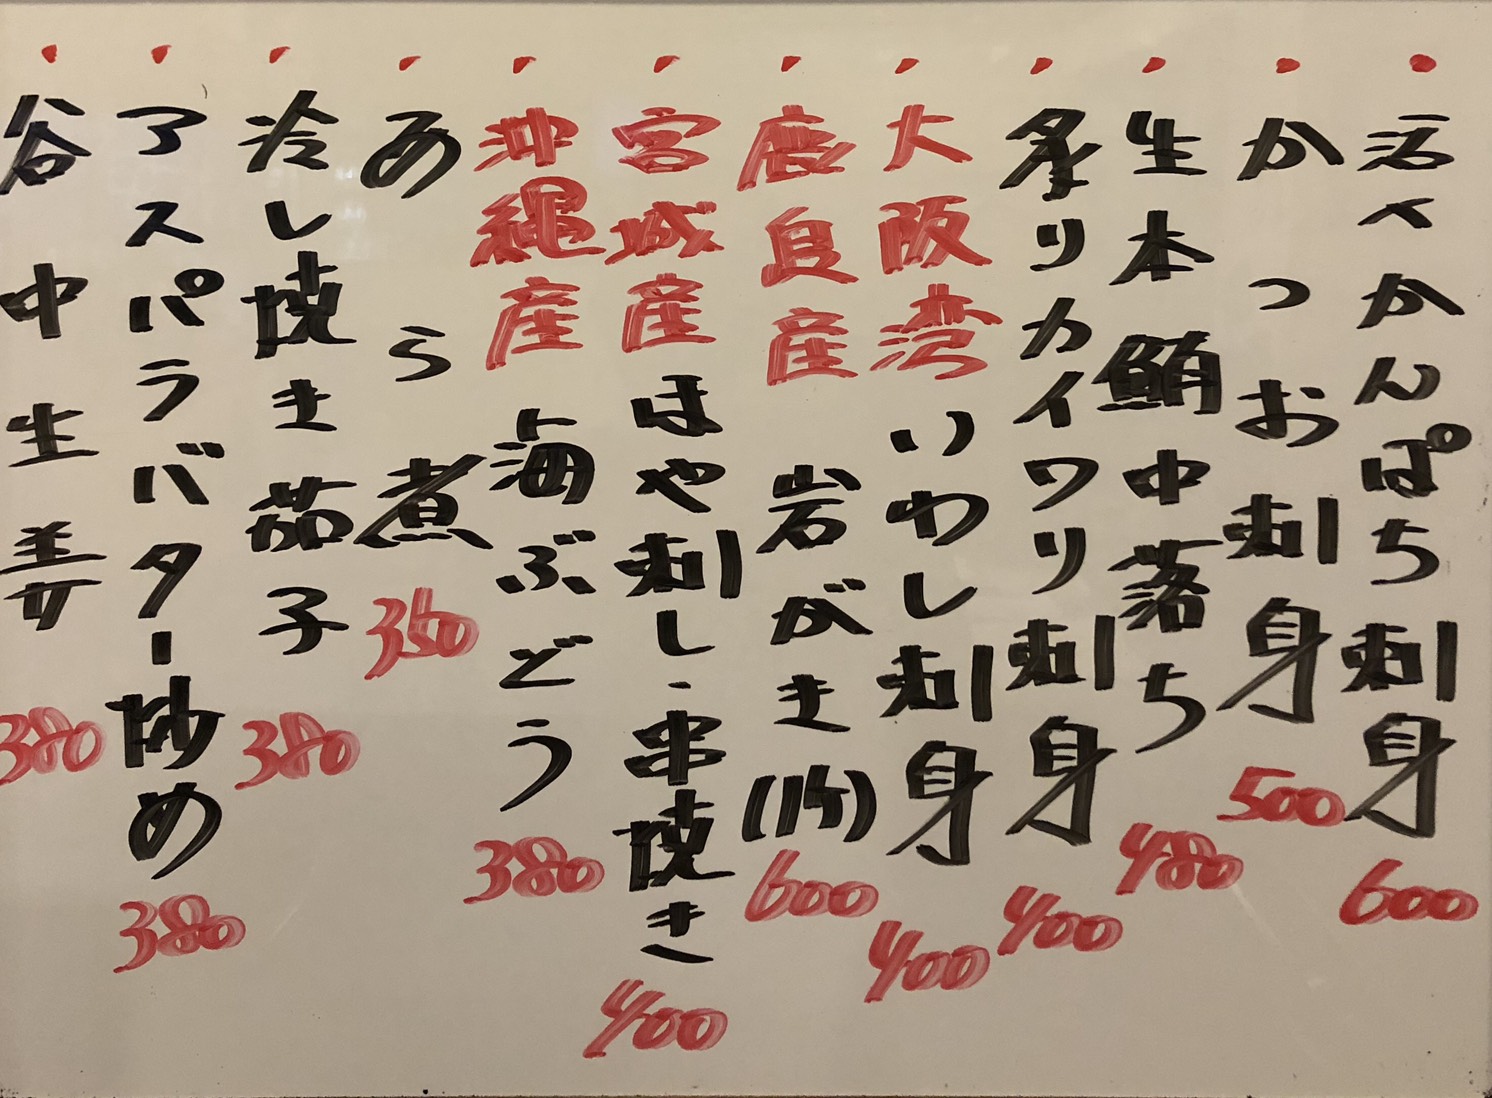 活〆かんぱち刺身 600
かつお刺身 500
生本鮪中落ち 480
炙りカイワリ刺身 400
大阪湾いわし刺身 400
鹿島産 岩がき(1ケ) 600
宮城産ほや刺し・串焼き 400
沖縄産 海ぶどう 380
あら煮 350
冷し焼き茄子 380
アスパラバター炒め 380
谷中生姜 380